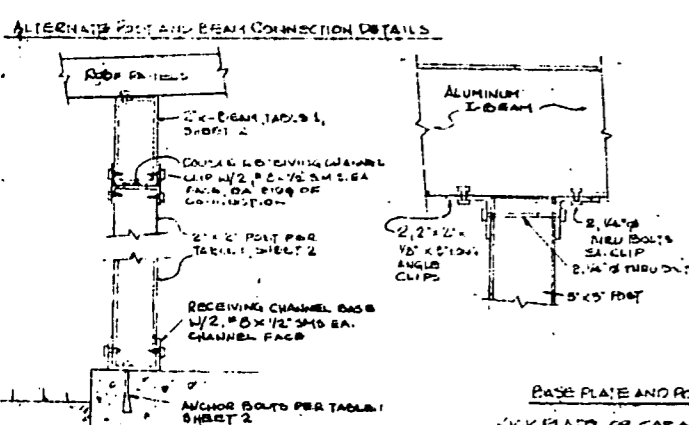 ALTERNATE POST AND BEAM CONNECTION DETAILS
ROOF PANELS
BEAM, TABLE 1,
SHEET 2
RECEIVING CHANNEL
CLIP W/2, #8 x 1/2" SMS EA.
FACE, EA. SIDE OF
CONNECTION
2" x 2" POST PER
TABLE 1, SHEET 2
RECEIVING CHANNEL BASE
W/2, #8 x 1/2" SMS EA.
CHANNEL FACE
ANCHOR BOLTS PER TABLE 1
SHEET 2
ALUMINUM
I-BEAM
2, 2" x 2" x
1/8" x
ANGLE
CLIPS
2, 1/4" ø
THRU BOLTS
EA. CLIP
2, 1/4" ø THRU
POST
BASE PLATE AND
PLATE OR